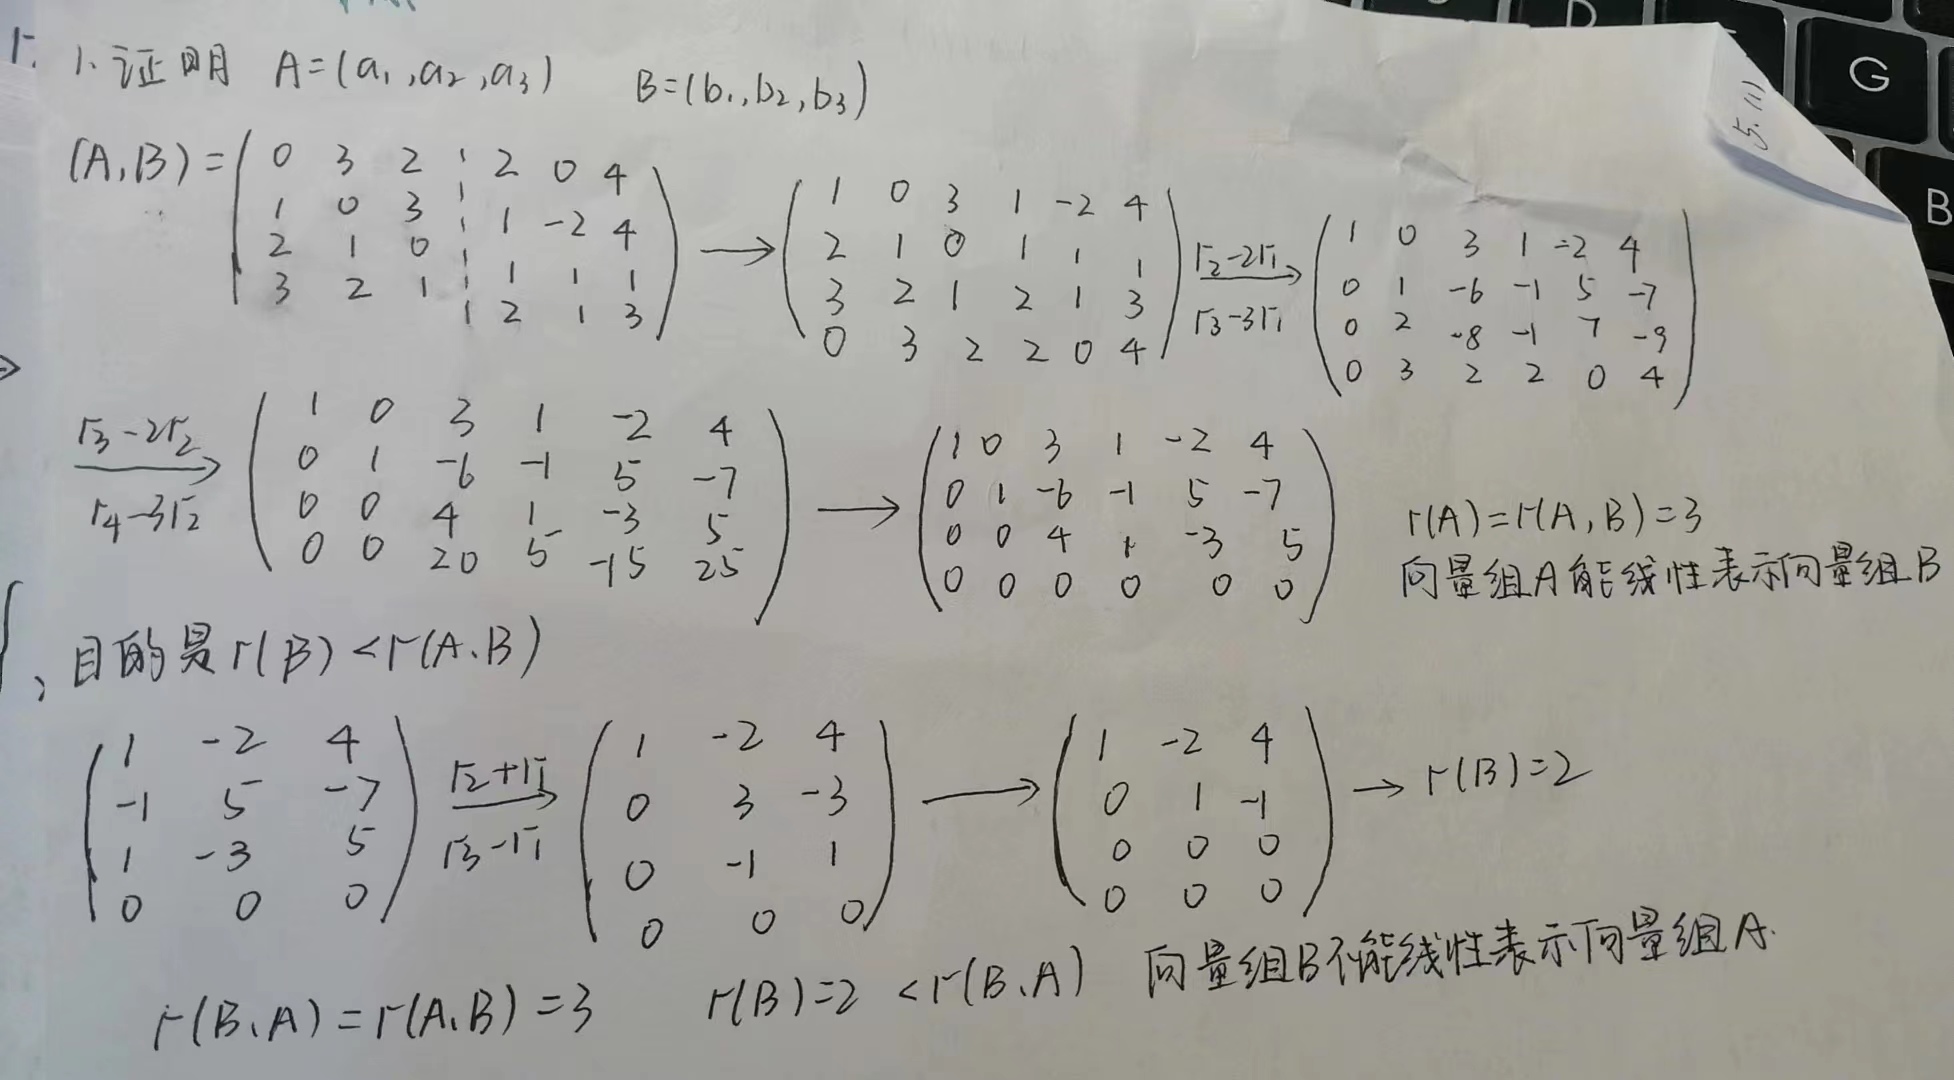 1. 证明 A=(a₁,a₂,a₃) B=(b₁,b₂,b₃)
(A,B)=
0 3 2 2 0 4
1 0 3 1 -2 4
2 1 0 1 1 1
3 2 1 2 1 3
→
1 0 3 1 -2 4
2 1 0 1 1 1
3 2 1 2 1 3
0 3 2 2 0 4
r₂-2r₁
r₃-3r₁
1 0 3 1 -2 4
0 1 -6 -1 5 -7
0 2 -8 -1 7 -9
0 3 2 2 0 4
r₃-2r₂
r₄-3r₂
1 0 3 1 -2 4
0 1 -6 -1 5 -7
0 0 4 1 -3 5
0 0 20 5 -15 25
→
1 0 3 1 -2 4
0 1 -6 -1 5 -7
0 0 4 1 -3 5
0 0 0 0 0 0
r(A)=r(A,B)=3
向量组A能线性表示向量组B
目的是r(B)<r(A.B)
1 -2 4
-1 5 -7
1 -3 5
0 0 0
r₂+r₁
r₃-r₁
1 -2 4
0 3 -3
0 -1 1
0 0 0
→
1 -2 4
0 1 -1
0 0 0
0 0 0
→ r(B)=2
r(B.A)=r(A.B)=3 r(B)=2 <r(B.A) 向量组B不能线性表示向量组A.
5.(1)
D
G
B